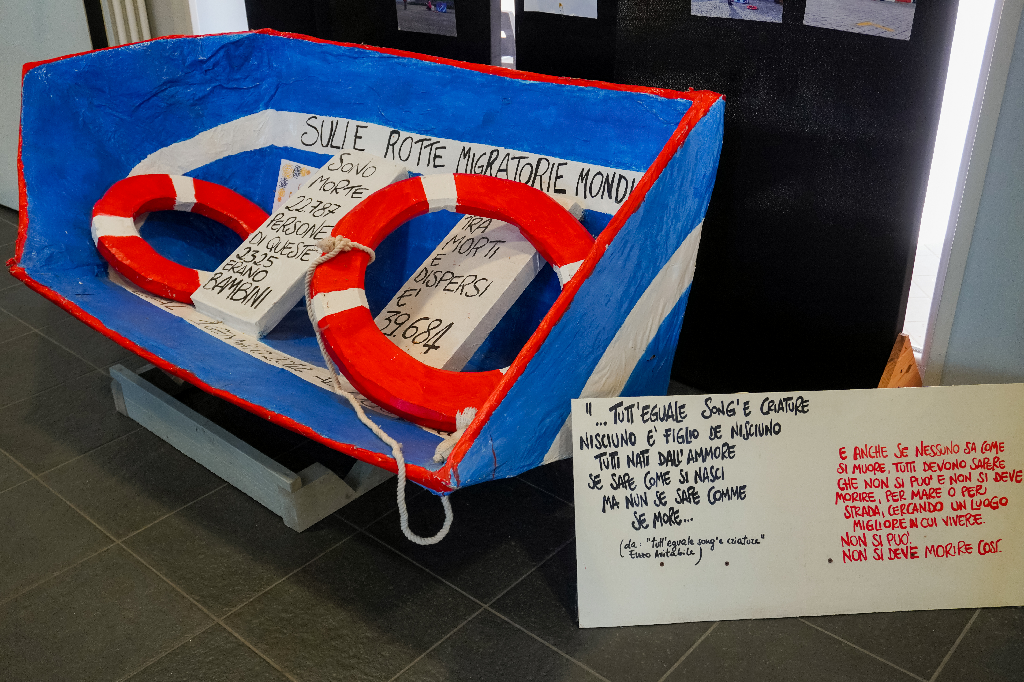 SULLE ROTTE MIGRATORIE MONDI
SONO
MORTE
22.787
PERSONE
DI QUESTE
2325
ERANO
BAMBINI
TRA
MORTI
E
DISPERSI
E'
39.684
"... TUTT'EGUALE SONG'E CRIATURE
NISCIUNO E' FIGLIO DE NISCIUNO
TUTTI NATI DALL'AMMORE
SE SAPE COME SI NASCI
MA NUN SE SAPE COMME
SE MORE...
(da: "tutt'eguale song'e criature"
Enzo Avitabile)
E ANCHE SE NESSUNO SA COME
SI MUORE, TUTTI DEVONO SAPERE
CHE NON SI PUO' E NON SI DEVE
MORIRE, PER MARE O PER
STRADA, CERCANDO UN LUOGO
MIGLIORE IN CUI VIVERE.
NON SI PUO'.
NON SI DEVE MORIRE COSI'.